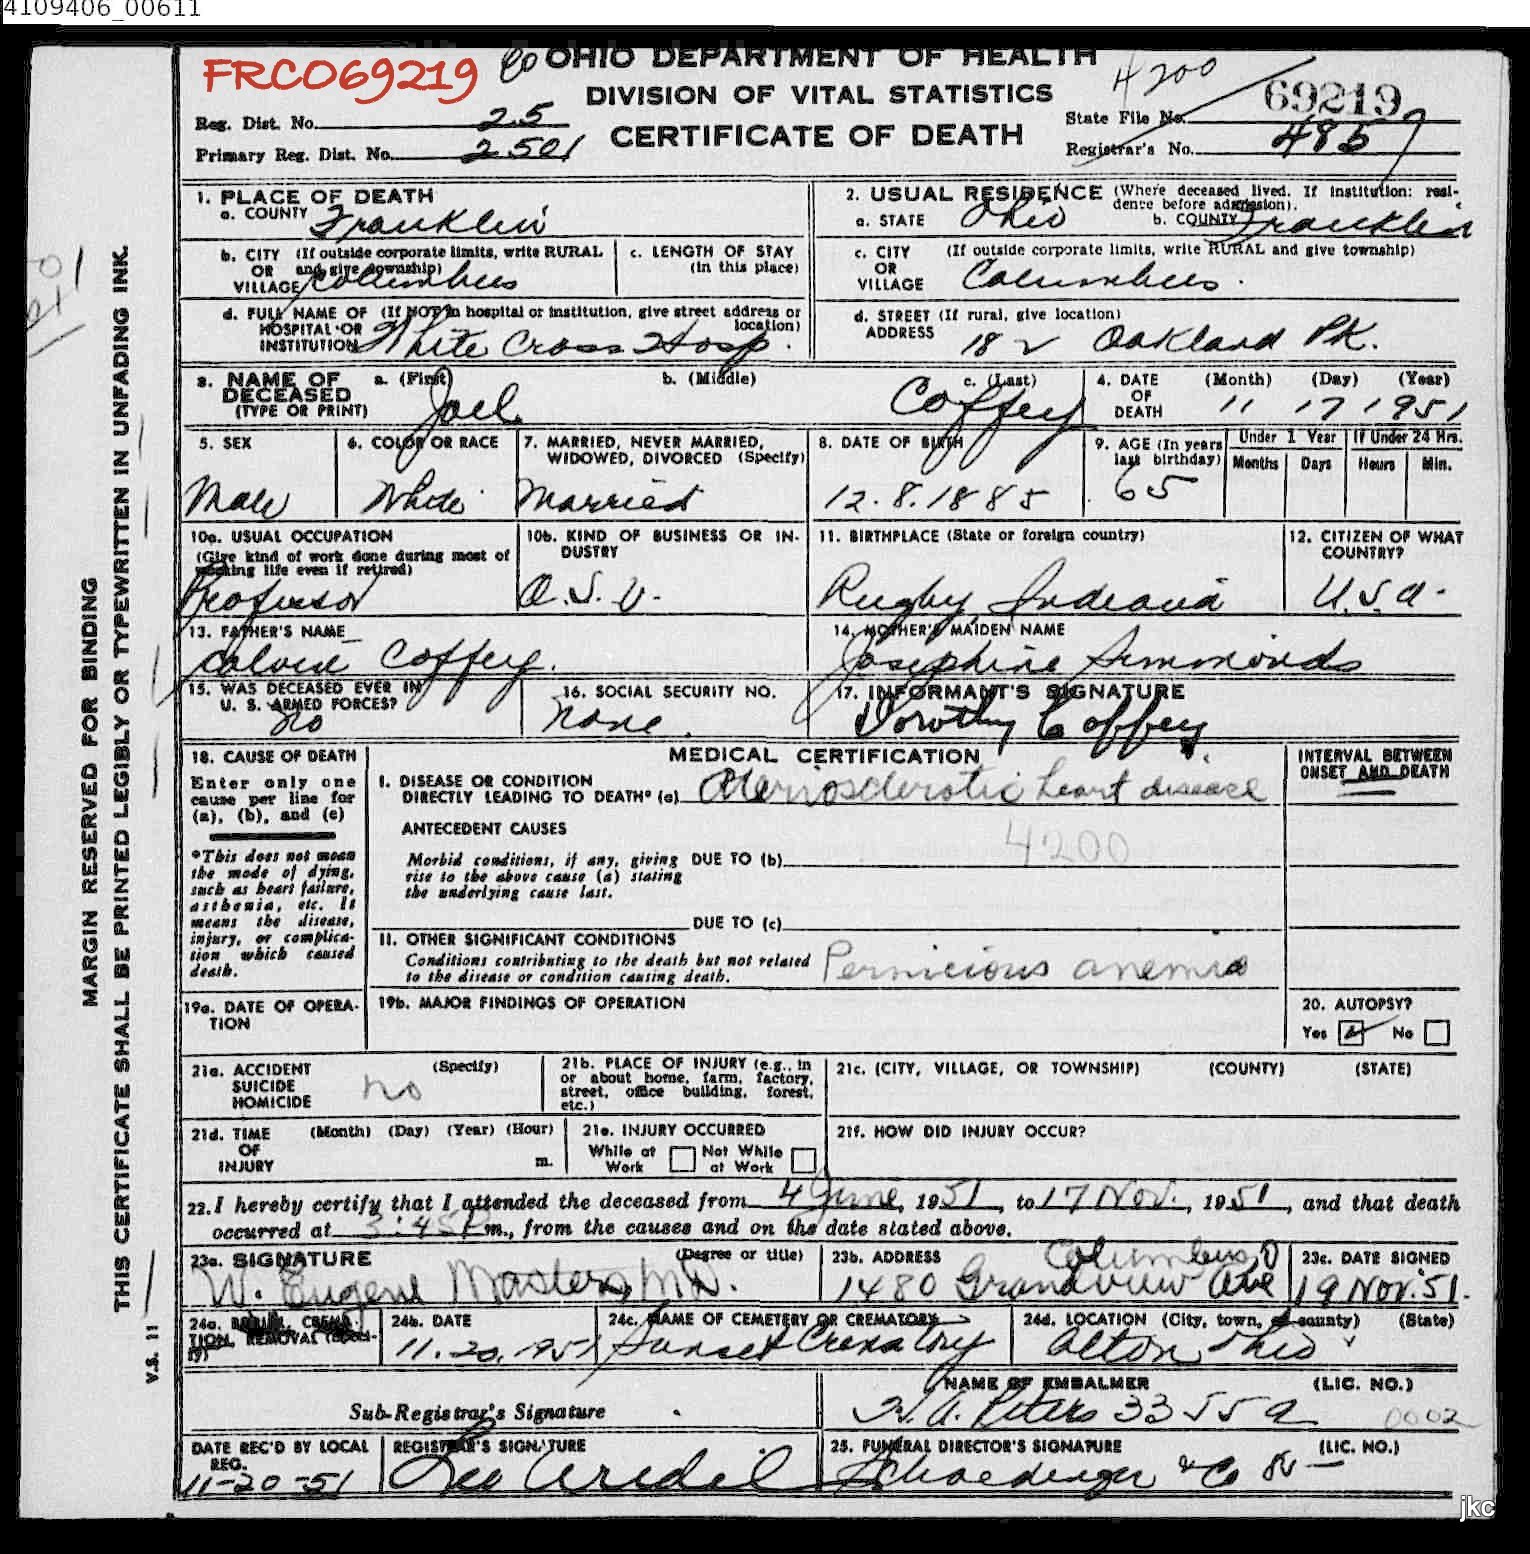 4109406_00611
FRCO69219
Co OHIO DEPARTMENT OF HEALTH
DIVISION OF VITAL STATISTICS
CERTIFICATE OF DEATH
4200
69219
Reg. Dist. No. 25
Primary Reg. Dist. No. 2501
State File No.
Registrar's No. 4857
1. PLACE OF DEATH
a. COUNTY Franklin
2. USUAL RESIDENCE (Where deceased lived. If institution: resi-
dence before admission).
a. STATE Ohio b. COUNTY Franklin
b. CITY (If outside corporate limits, write RURAL
OR and give township)
VILLAGE Columbus
c. LENGTH OF STAY
(in this place)
c. CITY (If outside corporate limits, write RURAL and give township)
OR
VILLAGE Columbus.
d. FULL NAME OF (If NOT in hospital or institution, give street address or
HOSPITAL OR location)
INSTITUTION White Cross Hosp.
d. STREET (If rural, give location)
ADDRESS 182 Oakland Pk.
3. NAME OF a. (First) b. (Middle) c. (Last)
DECEASED
(TYPE OR PRINT) Joel Coffey
4. DATE (Month) (Day) (Year)
OF
DEATH 11 17 1951
5. SEX
Male
6. COLOR OR RACE
White
7. MARRIED, NEVER MARRIED,
WIDOWED, DIVORCED (Specify)
Married
8. DATE OF BIRTH
12.8.1885
9. AGE (In years
last birthday)
65
Under 1 Year
Months Days
If Under 24 Hrs.
Hours Min.
10a. USUAL OCCUPATION
(Give kind of work done during most of
working life even if retired)
Professor
10b. KIND OF BUSINESS OR IN-
DUSTRY
O.S.U.
11. BIRTHPLACE (State or foreign country)
Rugby Indiana
12. CITIZEN OF WHAT
COUNTRY?
U.S.A.
13. FATHER'S NAME
Calvin Coffey.
14. MOTHER'S MAIDEN NAME
Josephine Simmonds
15. WAS DECEASED EVER IN
U. S. ARMED FORCES?
no
16. SOCIAL SECURITY NO.
None
17. INFORMANT'S SIGNATURE
Dorothy Coffey
18. CAUSE OF DEATH
Enter only one
cause per line for
(a), (b), and (c)
*This does not mean
the mode of dying,
such as heart failure,
asthenia, etc. It
means the disease,
injury, or complica-
tion which caused
death.
MEDICAL CERTIFICATION
I. DISEASE OR CONDITION
DIRECTLY LEADING TO DEATH* (a) Arteriosclerotic heart disease
ANTECEDENT CAUSES
4200
Morbid conditions, if any, giving DUE TO (b)
rise to the above cause (a) stating
the underlying cause last.
DUE TO (c)
II. OTHER SIGNIFICANT CONDITIONS
Conditions contributing to the death but not related
to the disease or condition causing death.
Pernicious anemia
INTERVAL BETWEEN
ONSET AND DEATH
19a. DATE OF OPERA-
TION
19b. MAJOR FINDINGS OF OPERATION
20. AUTOPSY?
Yes No
21a. ACCIDENT (Specify)
SUICIDE
HOMICIDE
no
21b. PLACE OF INJURY (e.g., in
or about home, farm, factory,
street, office building, forest,
etc.)
21c. (CITY, VILLAGE, OR TOWNSHIP) (COUNTY) (STATE)
21d. TIME (Month) (Day) (Year) (Hour)
OF
INJURY m.
21e. INJURY OCCURRED
While at Work Not While at Work
21f. HOW DID INJURY OCCUR?
22. I hereby certify that I attended the deceased from 4 June, 1951, to 17 Nov., 1951, and that death
occurred at 3:45P m., from the causes and on the date stated above.
23a. SIGNATURE (Degree or title)
W. Eugene Masters, M.D.
23b. ADDRESS Columbus, O
1480 Grandview Ave
23c. DATE SIGNED
19 Nov. 51.
24a. BURIAL, CREMA-
TION, REMOVAL (Speci-
fy)
24b. DATE
11.20.1951
24c. NAME OF CEMETERY OR CREMATORY
Sunset Crematory
24d. LOCATION (City, town, or county) (State)
Alton Ohio
Sub-Registrar's Signature
NAME OF EMBALMER (LIC. NO.)
H.A. Peters 3355A
0002
DATE REC'D BY LOCAL
REG.
11-20-51
REGISTRAR'S SIGNATURE
25. FUNERAL DIRECTOR'S SIGNATURE (LIC. NO.)
Schoedinger & Co
MARGIN RESERVED FOR BINDING
THIS CERTIFICATE SHALL BE PRINTED LEGIBLY OR TYPEWRITTEN IN UNFADING INK.
V.S. 11
jkc